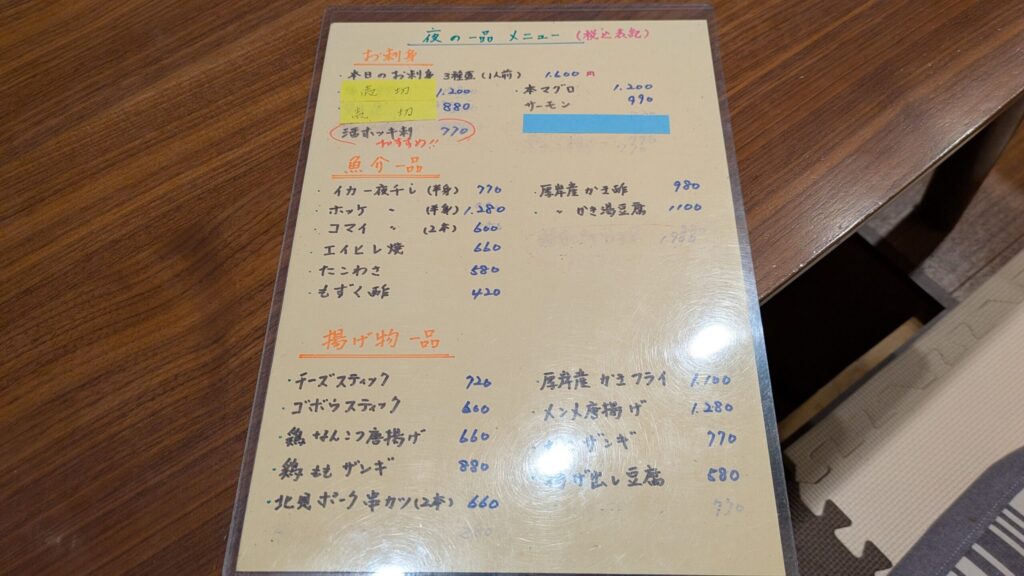 夜の一品 メニュー (税込表記)
お刺身
・本日のお刺身 3種盛(1人前) 1.600円
売切 1.200
売切 880
活ホッキ刺 770
おすすめ!!
・本マグロ 1.200
サーモン 990
魚介一品
・イカ一夜干し (半身) 770
・ホッケ 〃 (半身) 1.280
・コマイ 〃 (2本) 600
・エイヒレ焼 660
・たこわさ 580
・もずく酢 420
・厚岸産 かき酢 980
・〃 かき湯豆腐 1100
揚げ物一品
・チーズスティック 720
・ゴボウスティック 600
・鶏なんこつ唐揚げ 660
・鶏ももザンギ 880
・北見ポーク串カツ(2本) 660
・厚岸産 かきフライ 1.100
・メンメ唐揚げ 1.280
ザンギ 770
げ出し豆腐 580